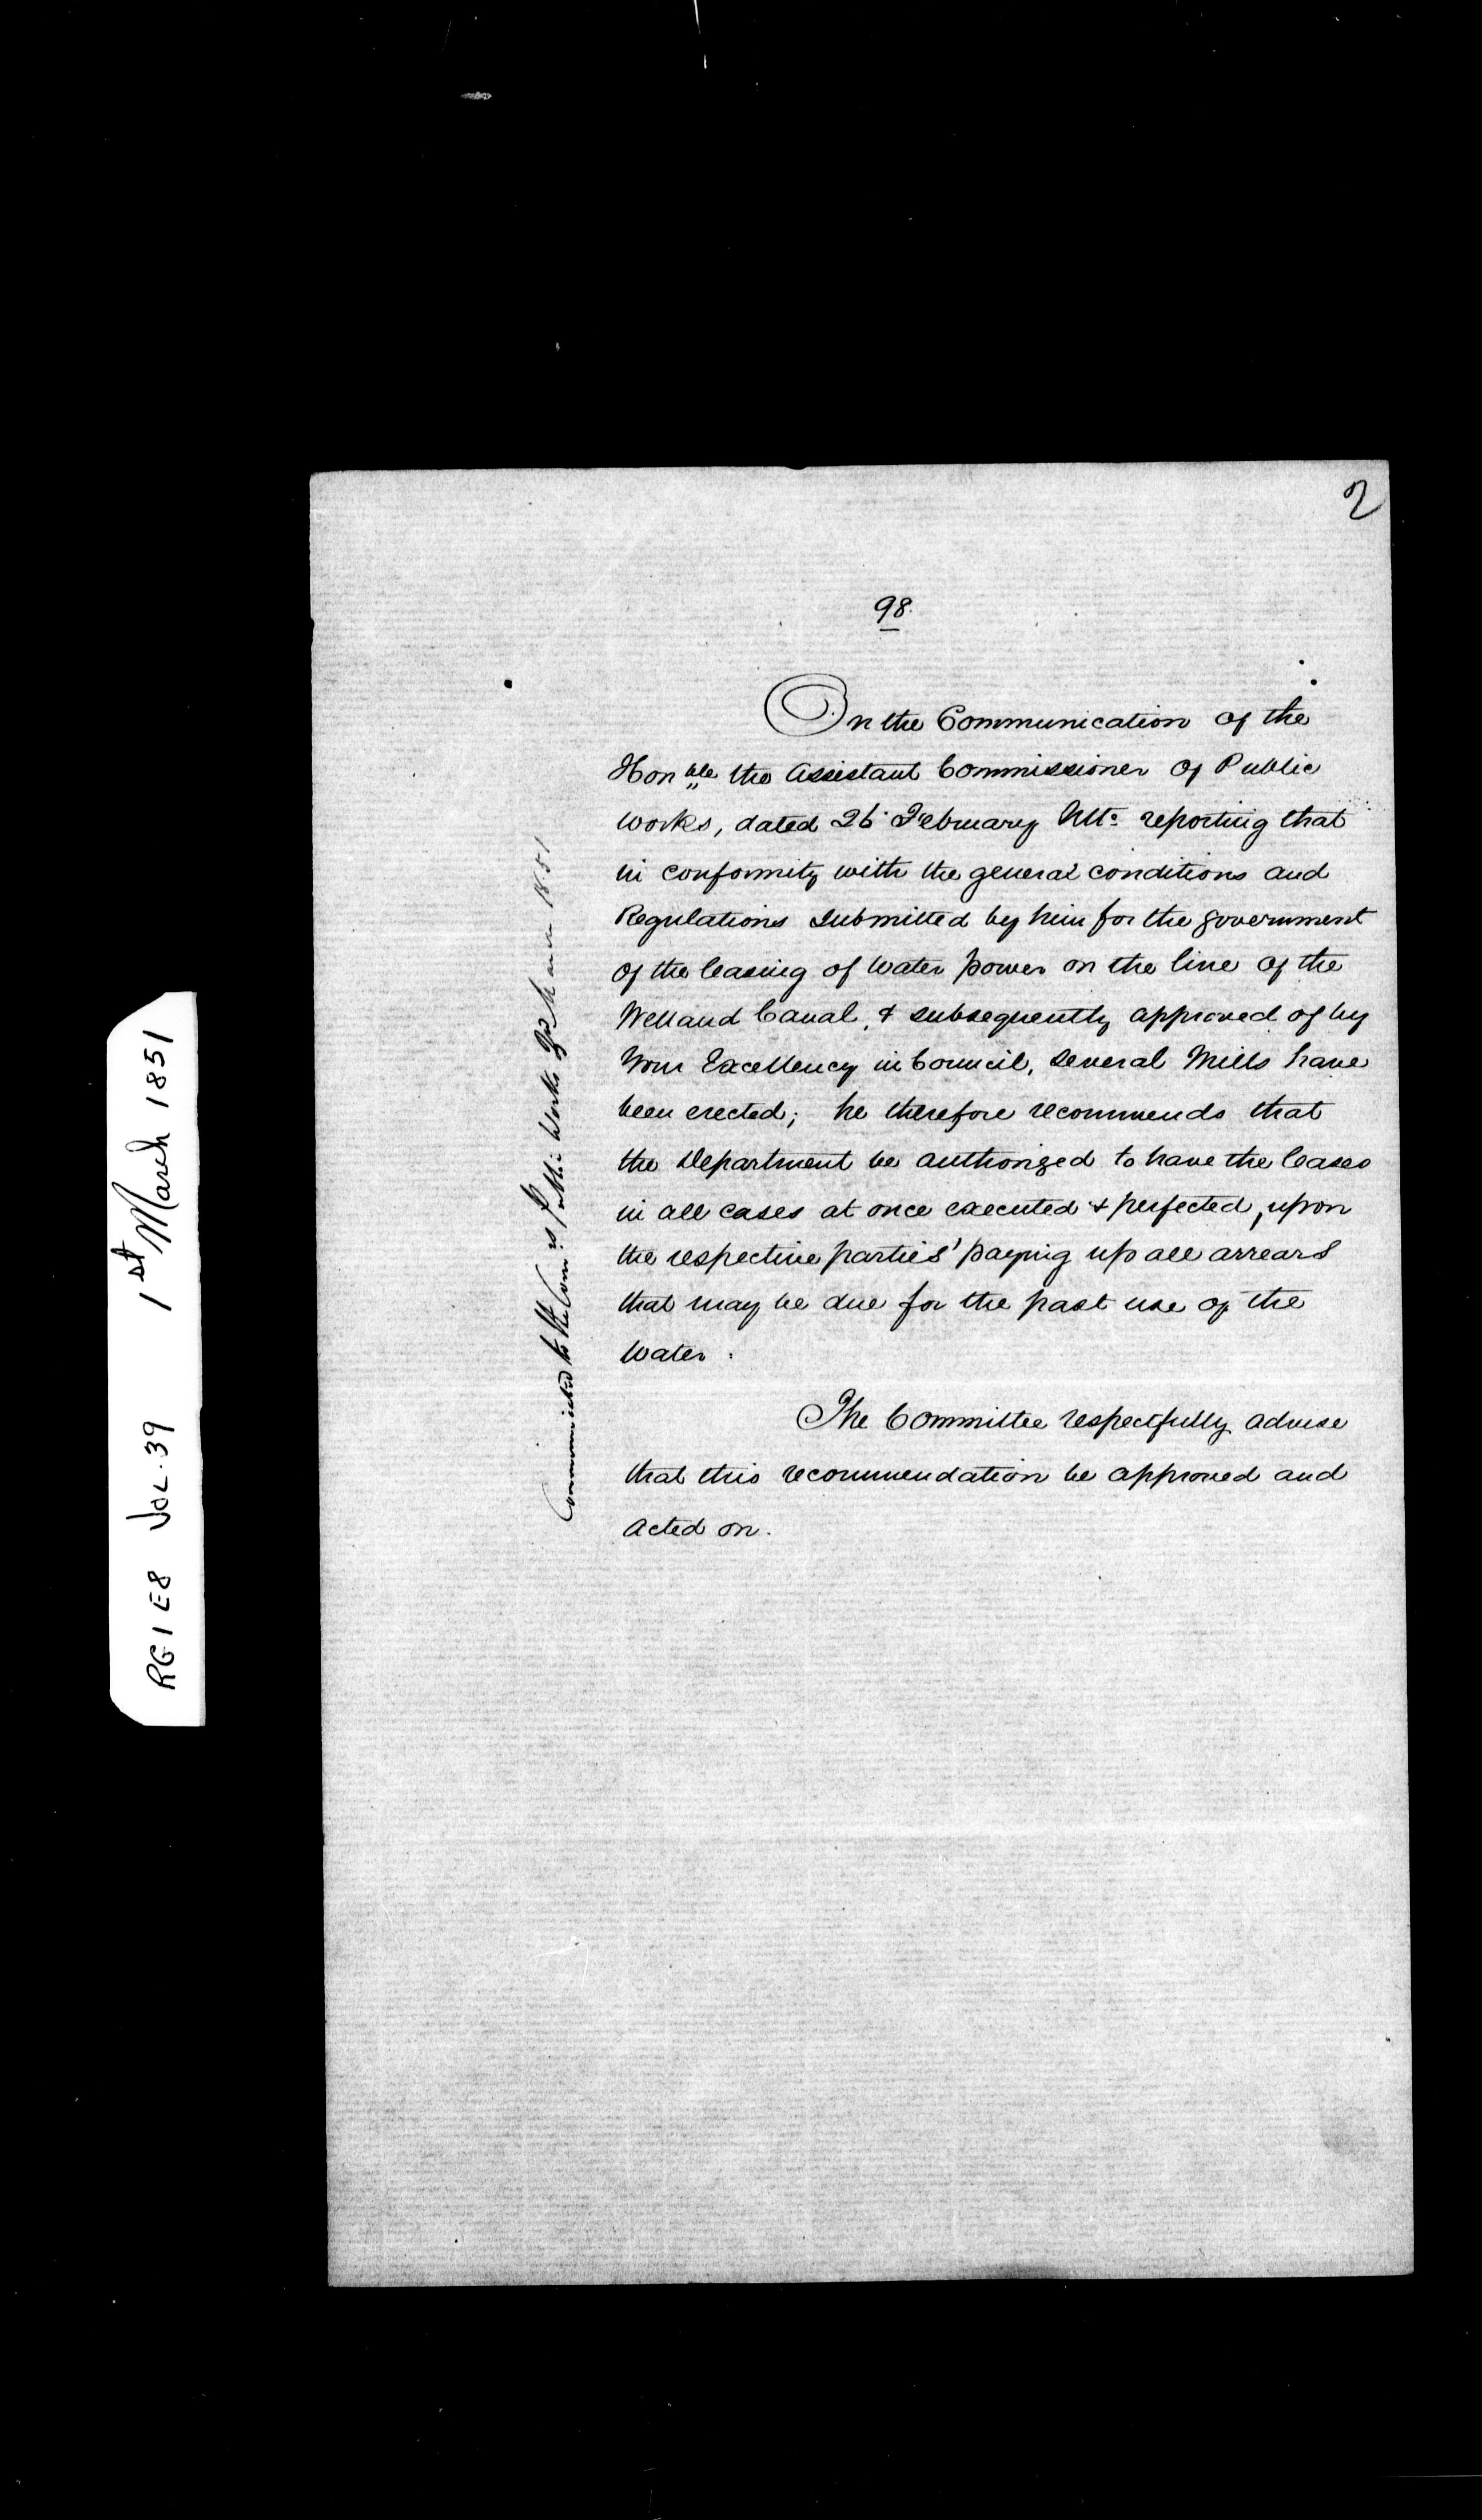 2
98.
On the Communication of the
Honble the Assistant Commissioner of Public
Works, dated 26 February Ulto reporting that
in conformity with the general conditions and
Regulations submitted by him for the government
of the leasing of water power on the line of the
Welland Canal, & subsequently approved of by
Your Excellency in Council, several Mills have
been erected; he therefore recommends that
the Department be authorized to have the leases
in all cases at once executed & perfected, upon
the respective parties' paying up all arrears
that may be due for the past use of the
water.
The Committee respectfully advise
that this recommendation be approved and
acted on.
Communicated to the Comrs Public Works March 1851
RG1 E8 VOL. 39 1st March 1851